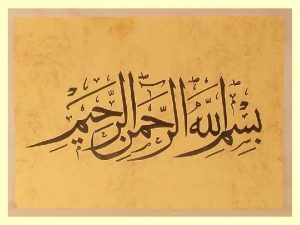 بِسْمِ اللهِ الرَّحْمنِ الرَّحِيْمِ